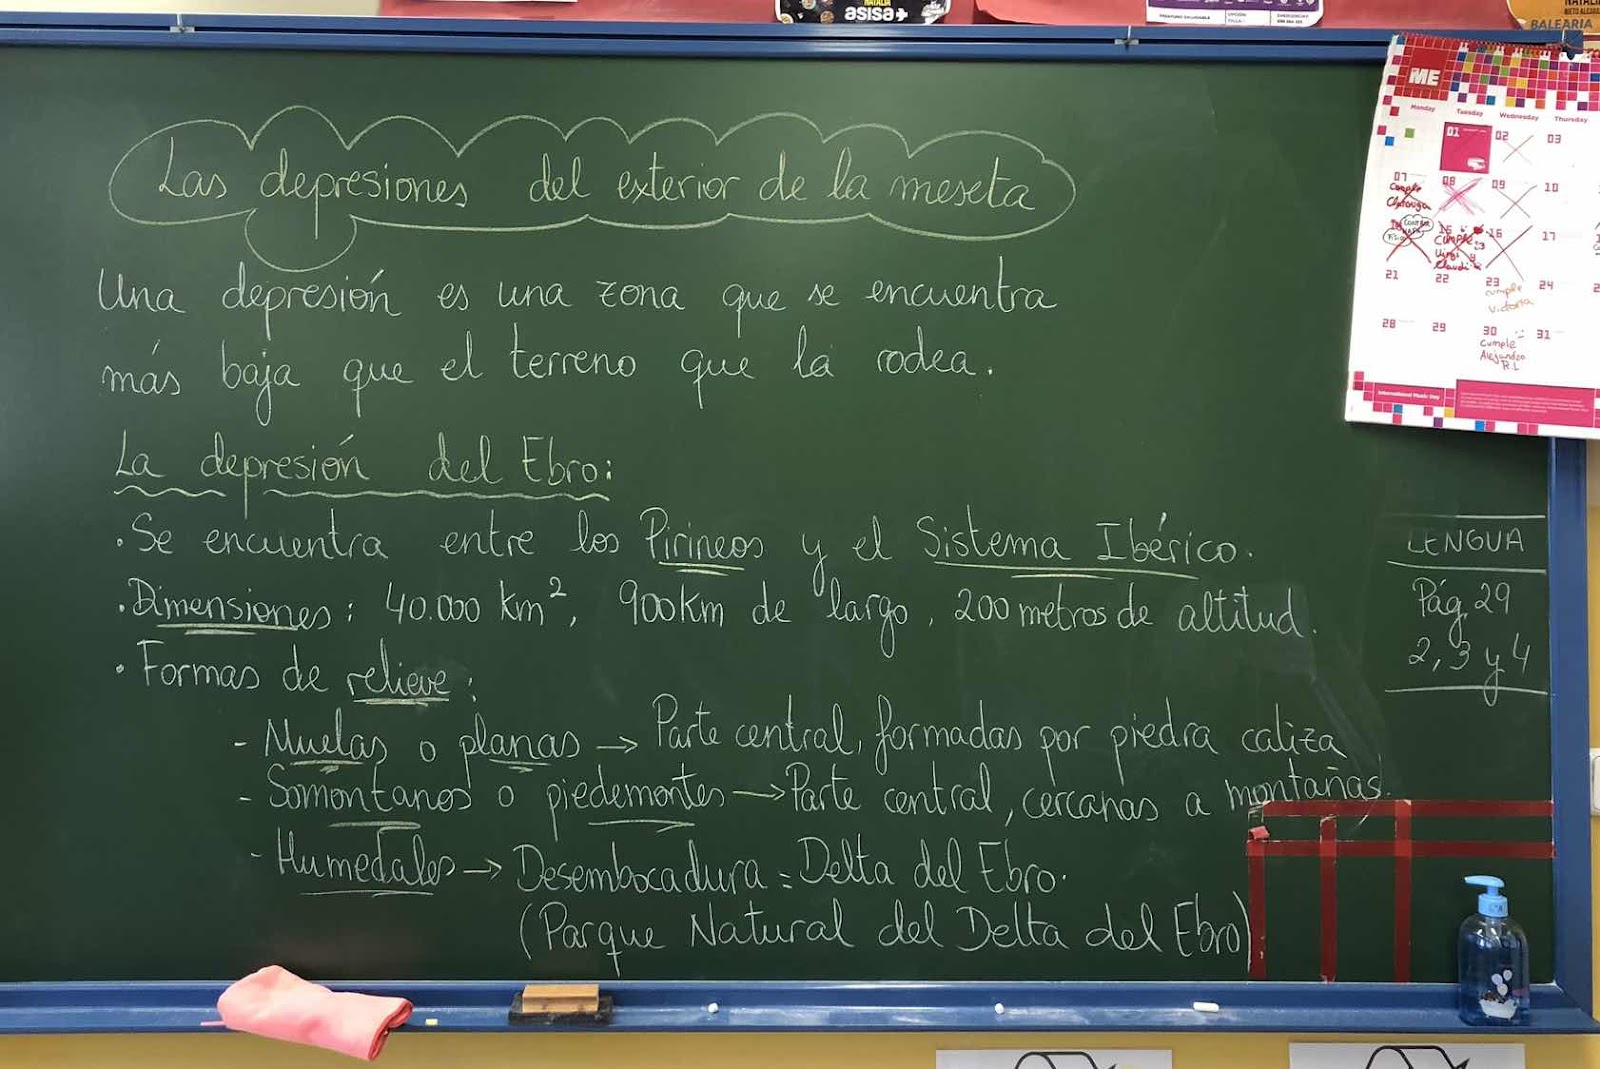 NATALIA
asisa+
NATALIA
NIETO ALCARA
BALEARIA
Las depresiones del exterior de la meseta
Una depresión es una zona que se encuentra
más baja que el terreno que la rodea.
La depresión del Ebro:
· Se encuentra entre los Pirineos y el Sistema Ibérico.
· Dimensiones: 40.000 km², 900km de largo, 200 metros de altitud.
· Formas de relieve:
- Muelas o planas → Parte central, formadas por piedra caliza
- Somontanos o piedemontes → Parte central, cercanas a montañas.
- Humedales → Desembocadura = Delta del Ebro.
(Parque Natural del Delta del Ebro)
LENGUA
Pág. 29
2, 3 y 4
ME
Monday Tuesday Wednesday Thursday
01 02 03
07 08 09 10
cumple
15 16 17
Cumple
Virgi y
Claudi
21 22 23 24
cumple
Victoria
28 29 30 31
Cumple
Alejandro
R.L
International Music Day